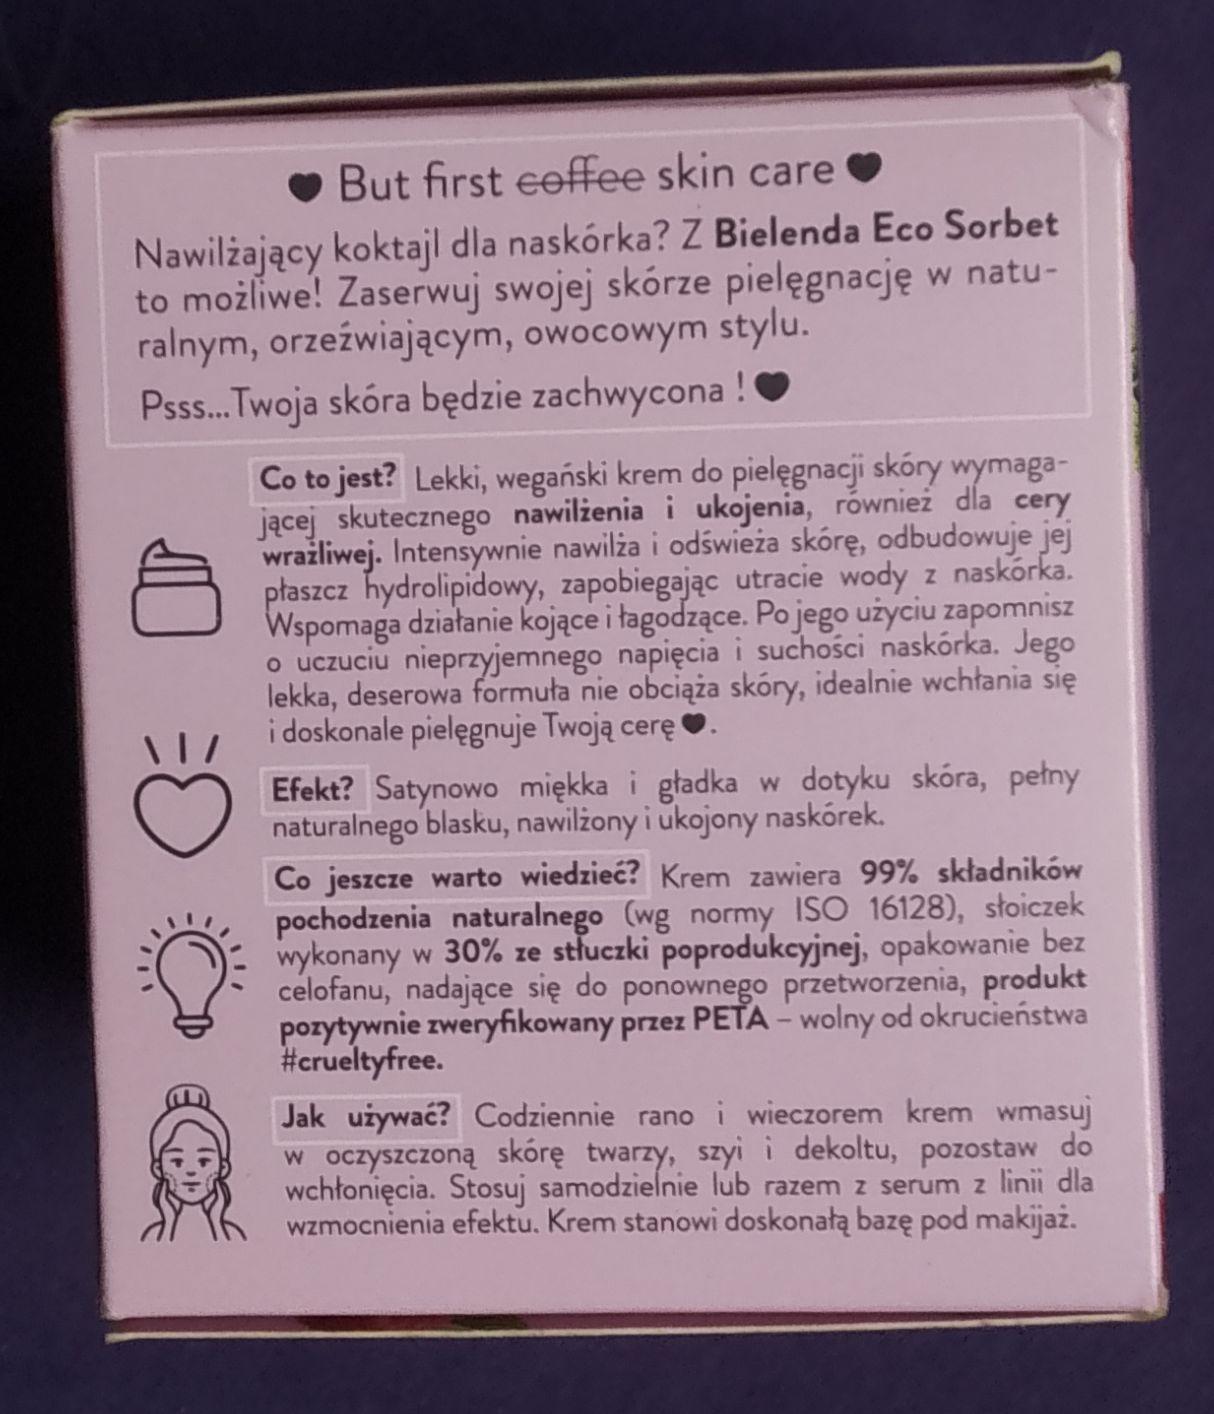 ♥ But first coffee skin care ♥
Nawilżający koktajl dla naskórka? Z Bielenda Eco Sorbet
to możliwe! Zaserwuj swojej skórze pielęgnację w natu-
ralnym, orzeźwiającym, owocowym stylu.
Psss...Twoja skóra będzie zachwycona ! ♥
Co to jest? Lekki, wegański krem do pielęgnacji skóry wymaga-
jącej skutecznego nawilżenia i ukojenia, również dla cery
wrażliwej. Intensywnie nawilża i odświeża skórę, odbudowuje jej
płaszcz hydrolipidowy, zapobiegając utracie wody z naskórka.
Wspomaga działanie kojące i łagodzące. Po jego użyciu zapomnisz
o uczuciu nieprzyjemnego napięcia i suchości naskórka. Jego
lekka, deserowa formuła nie obciąża skóry, idealnie wchłania się
i doskonale pielęgnuje Twoją cerę ♥.
Efekt? Satynowo miękka i gładka w dotyku skóra, pełny
naturalnego blasku, nawilżony i ukojony naskórek.
Co jeszcze warto wiedzieć? Krem zawiera 99% składników
pochodzenia naturalnego (wg normy ISO 16128), słoiczek
wykonany w 30% ze stłuczki poprodukcyjnej, opakowanie bez
celofanu, nadające się do ponownego przetworzenia, produkt
pozytywnie zweryfikowany przez PETA – wolny od okrucieństwa
#crueltyfree.
Jak używać? Codziennie rano i wieczorem krem wmasuj
w oczyszczoną skórę twarzy, szyi i dekoltu, pozostaw do
wchłonięcia. Stosuj samodzielnie lub razem z serum z linii dla
wzmocnienia efektu. Krem stanowi doskonałą bazę pod makijaż.